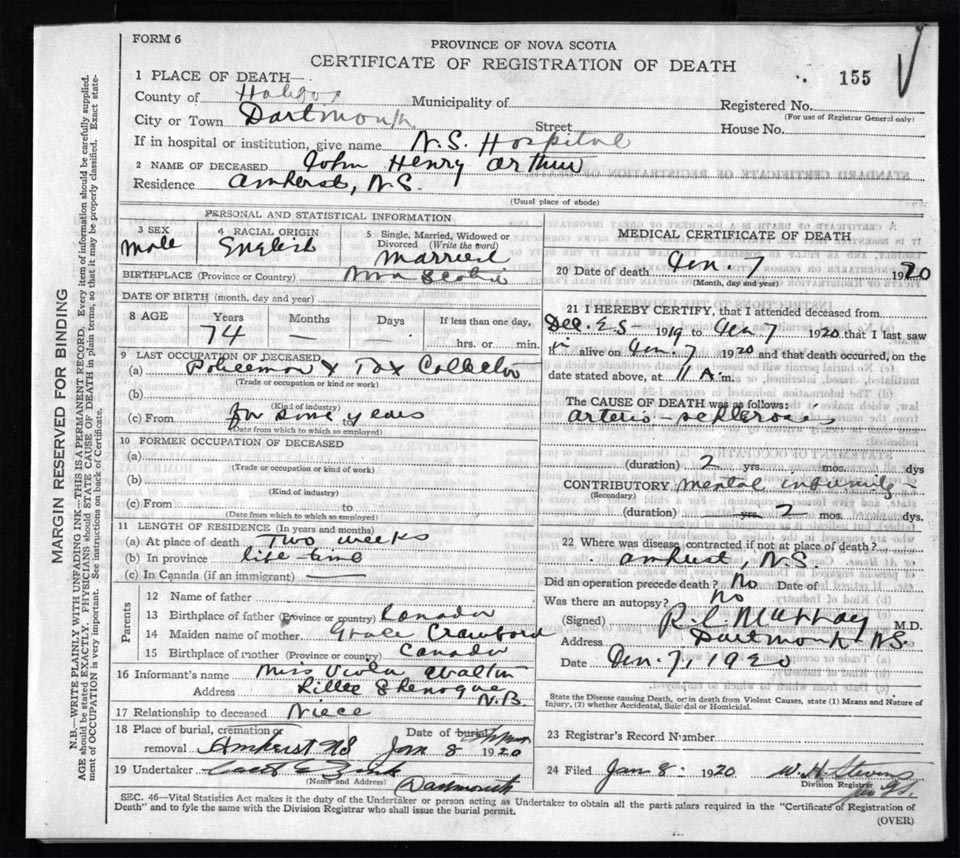 FORM 6
PROVINCE OF NOVA SCOTIA
CERTIFICATE OF REGISTRATION OF DEATH
155
1 PLACE OF DEATH—
County of Halifax Municipality of Registered No.
(For use of Registrar General only)
City or Town Dartmouth Street House No.
If in hospital or institution, give name N.S. Hospital
2 NAME OF DECEASED John Henry Arthur
Residence Amherst, N.S.
(Usual place of abode)
PERSONAL AND STATISTICAL INFORMATION
3 SEX Male
4 RACIAL ORIGIN English
5 Single, Married, Widowed or Divorced (Write the word) Married
BIRTHPLACE (Province or Country) Nova Scotia
DATE OF BIRTH (month, day and year)
8 AGE Years Months Days If less than one day,
74 — — hrs. or min.
9 LAST OCCUPATION OF DECEASED
(a) Policeman & Tax Collector
(Trade or occupation or kind of work)
(b)
(Kind of industry)
(c) From for some years to
(Date from which to which so employed)
10 FORMER OCCUPATION OF DECEASED
(a)
(Trade or occupation or kind of work)
(b)
(Kind of industry)
(c) From to
(Date from which to which so employed)
11 LENGTH OF RESIDENCE (In years and months)
(a) At place of death Two weeks
(b) In province life-time
(c) In Canada (if an immigrant) —
Parents
12 Name of father
13 Birthplace of father (Province or country) Canada
14 Maiden name of mother Grace Crawford
15 Birthplace of mother (Province or country) Canada
16 Informant's name Miss Viola
Address N.B.
17 Relationship to deceased Niece
18 Place of burial, cremation or removal Amherst NS Date of burial Jan 8 1920
19 Undertaker
(Name and Address) Dartmouth
MEDICAL CERTIFICATE OF DEATH
20 Date of death Jan. 7 1920
(Month, day and year)
21 I HEREBY CERTIFY, that I attended deceased from
Dec. 1919 to Jan 7 1920 that I last saw
h im alive on Jan. 7 1920 and that death occurred, on the
date stated above, at 11 A m.
The CAUSE OF DEATH was as follows:
Arterio-sclerosis
(duration) 2 yrs. mos. dys
CONTRIBUTORY Mental infirmity
(Secondary)
(duration) yrs 2 mos. dys.
22 Where was disease contracted if not at place of death?
Amherst, N.S.
Did an operation precede death? No Date of
Was there an autopsy? No
(Signed) Murray M.D.
Address Dartmouth NS.
Date Jan. 7, 1920
State the Disease causing Death, or in death from Violent Causes, state (1) Means and Nature of
Injury, (2) whether Accidental, Suicidal or Homicidal.
23 Registrar's Record Number
24 Filed Jan 8 1920 W. H. Stevens
Division Registrar
SEC. 46—Vital Statistics Act makes it the duty of the Undertaker or person acting as Undertaker to obtain all the particulars required in the "Certificate of Registration of
Death" and to fyle the same with the Division Registrar who shall issue the burial permit.
(OVER)
MARGIN RESERVED FOR BINDING
N.B.—WRITE PLAINLY WITH UNFADING INK—THIS IS A PERMANENT RECORD. Every item of information should be carefully supplied.
AGE should be stated EXACTLY. PHYSICIANS should STATE CAUSE OF DEATH in plain terms, so that it may be properly classified. Exact state-
ment of OCCUPATION is very important. See instructions on back of Certificate.